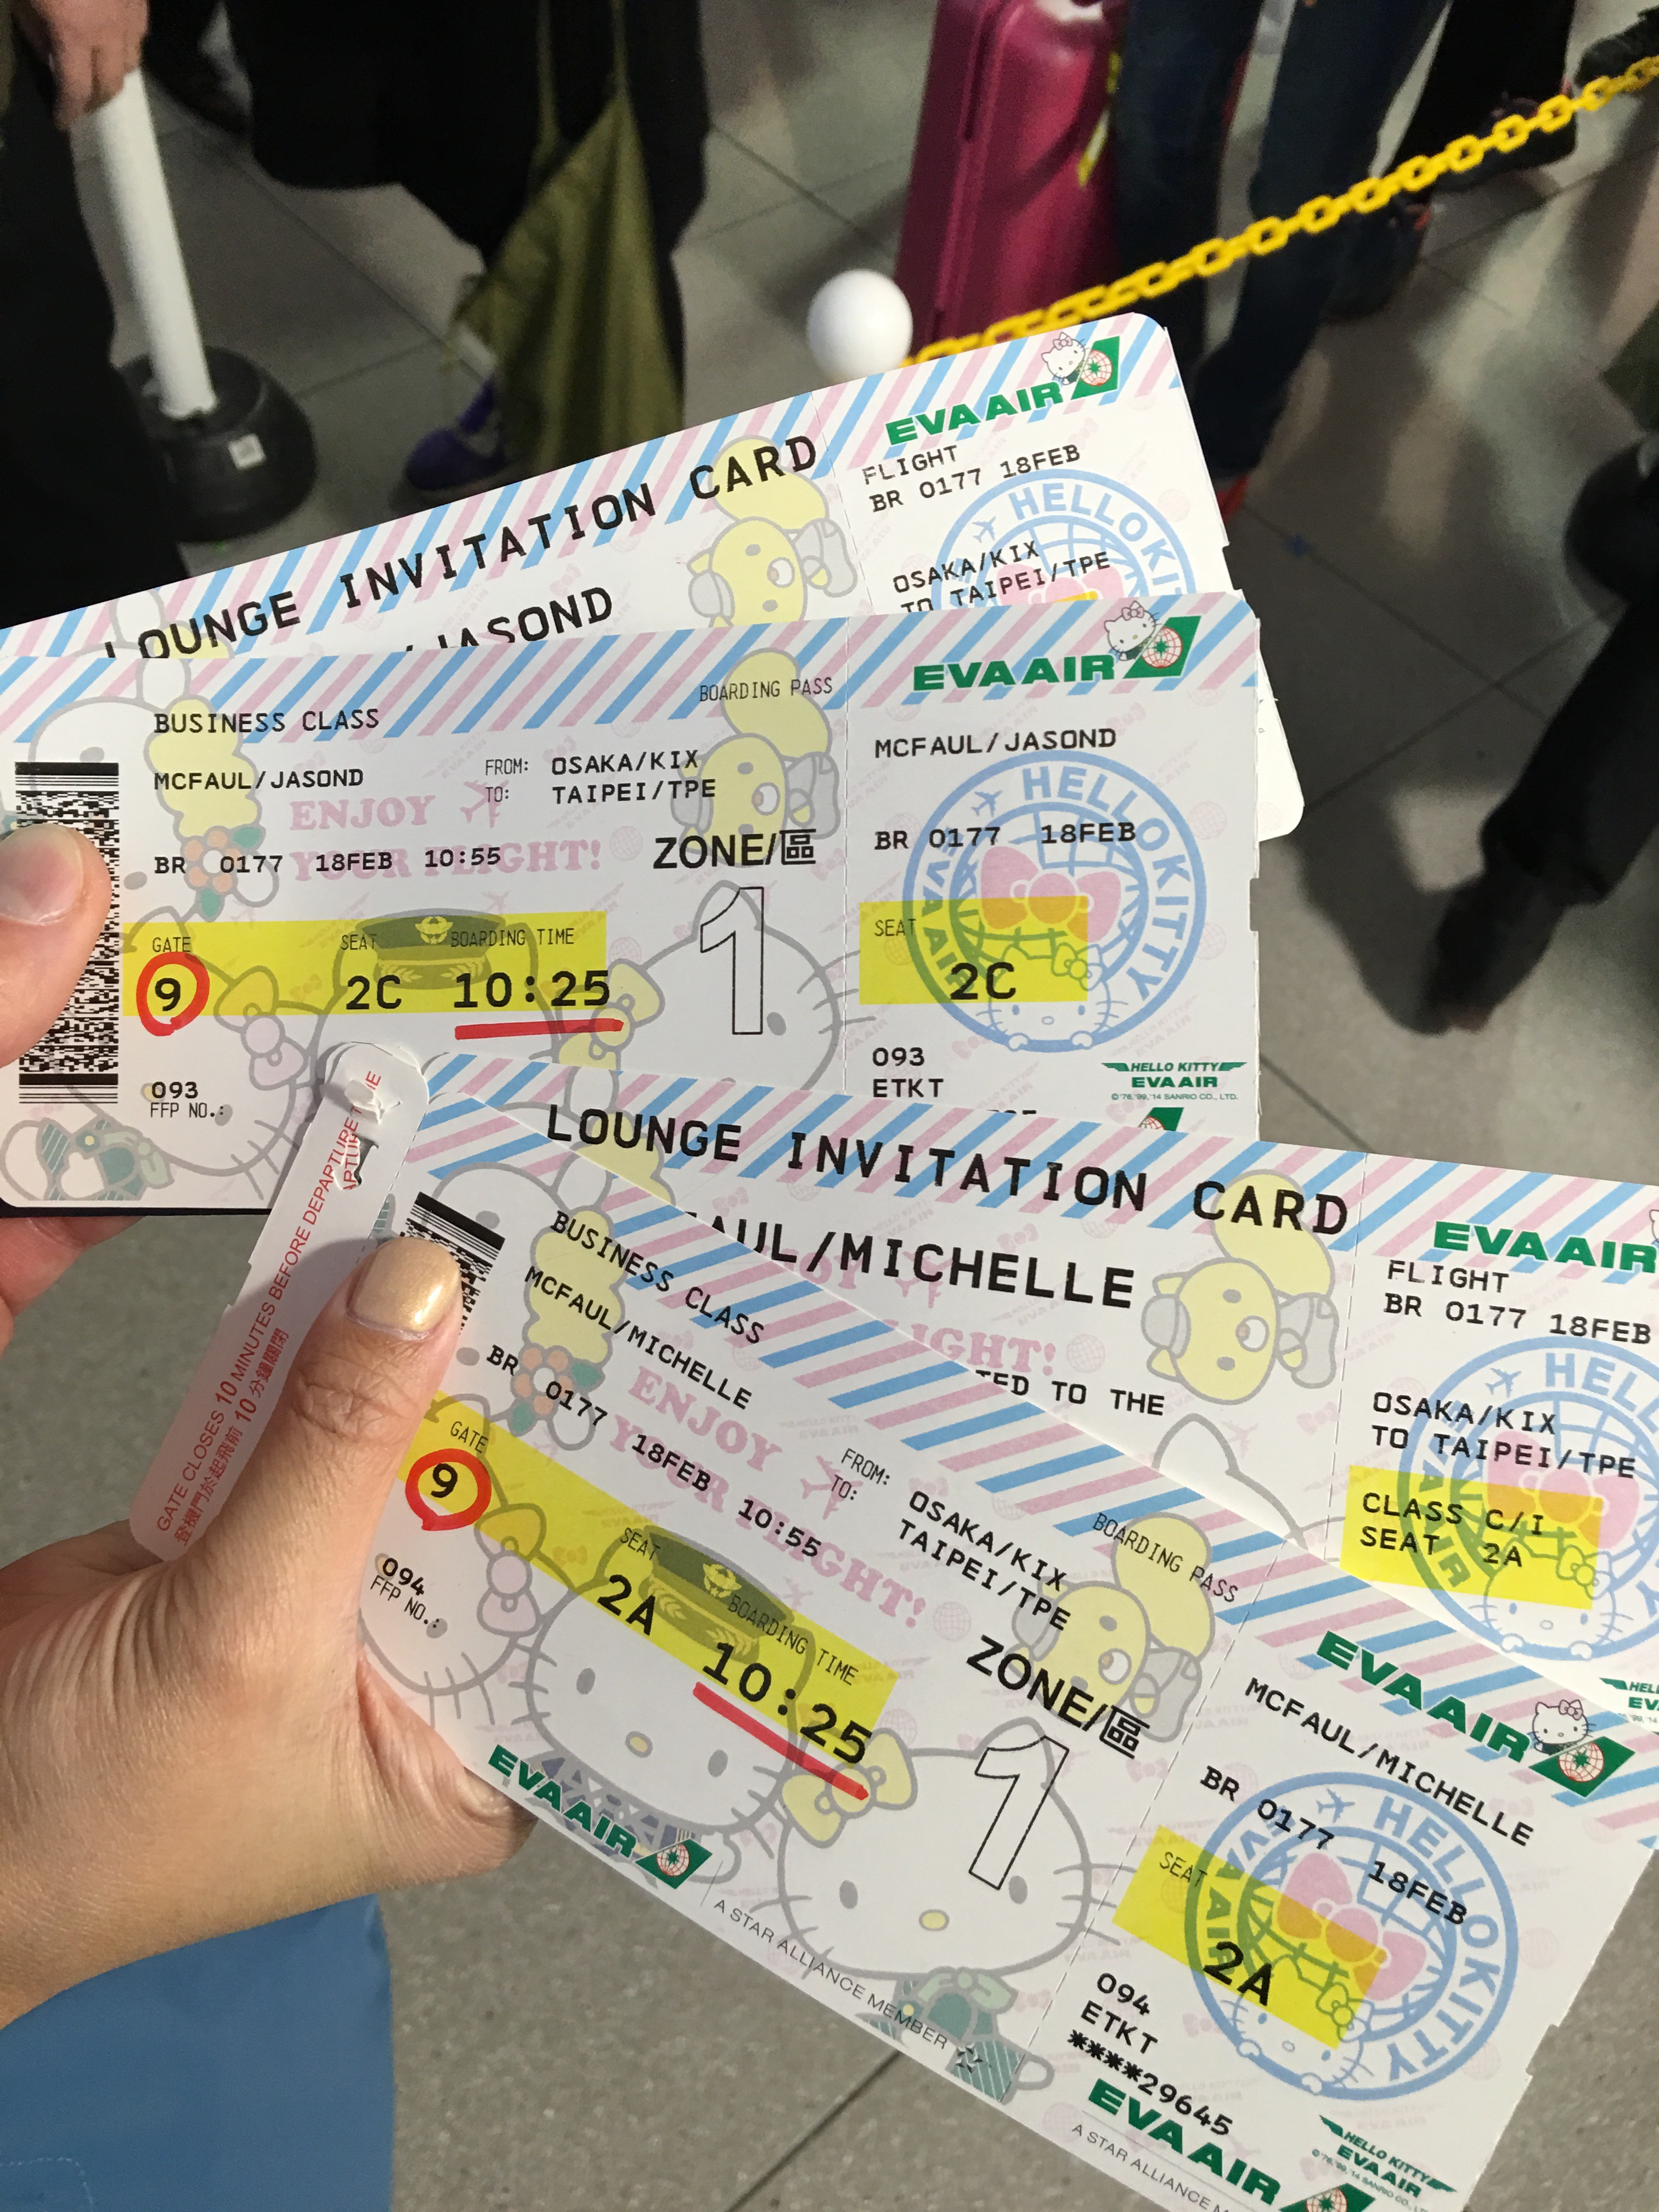 LOUNGE INVITATION CARD
/JASOND
EVA AIR
FLIGHT
BR 0177 18FEB
HELLO KIT
OSAKA/KIX
TO TAIPEI/TPE
BOARDING PASS
BUSINESS CLASS
MCFAUL/JASOND
FROM: OSAKA/KIX
TO: TAIPEI/TPE
ENJOY
YOUR FLIGHT!
BR 0177 18FEB 10:55
ZONE/區
1
GATE SEAT BOARDING TIME
9 2C 10:25
093
FFP NO.:
EVA AIR
MCFAUL/JASOND
BR 0177 18FEB
HELLO KITTY
EVA AIR
SEAT
2C
093
ETKT
HELLO KITTY
EVA AIR
©'76,'99,'14 SANRIO CO., LTD.
GATE CLOSES 10 MINUTES BEFORE DEPARTURE TIME
登機門於起飛前 10 分鐘關閉
LOUNGE INVITATION CARD
AUL/MICHELLE
IGHT!
TED TO THE
EVA AIR
FLIGHT
BR 0177 18FEB
HELLO
OSAKA/KIX
TO TAIPEI/TPE
CLASS C/I
SEAT 2A
EVA AIR
BUSINESS CLASS
MCFAUL/MICHELLE
BR 0177 18FEB 10:55
ENJOY
YOUR FLIGHT!
FROM: OSAKA/KIX
TO: TAIPEI/TPE
BOARDING PASS
GATE SEAT BOARDING TIME
9 2A 10:25
ZONE/區
1
094
FFP NO.:
EVA AIR
A STAR ALLIANCE MEMBER
EVA AIR
MCFAUL/MICHELLE
BR 0177 18FEB
HELLO KITTY
EVA AIR
SEAT
2A
094
ETKT
****29645
EVA AIR
A STAR ALLIANCE M
HELLO KITTY
EVA AIR
©'76,'99,'14 SANRIO CO., LTD.